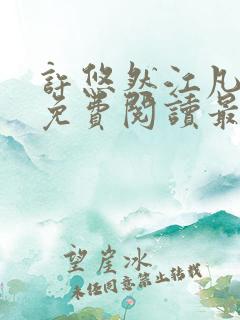 許悠然江凡
免費閱讀最
望崖冰
未经同意禁止转载